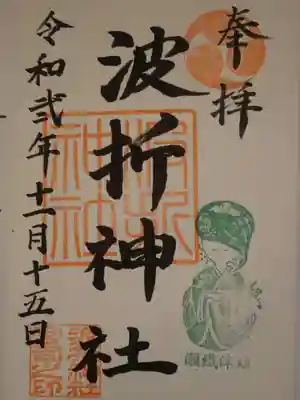 奉拝
波折神社
令和弐年十一月十五日
波折
神社